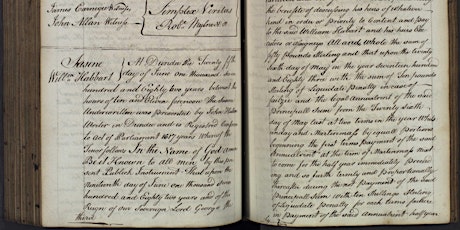 James Carnegy & Insp.
John Allan Witness
Simplex Veritas
Robt. N.P.
Sasine
Willm. Habbart
At Dundee the Twenty fifth
day of June one thousand seven
hundred and Eighty two years betwixt the
hours of ten and Eleven forenoon The Sasine
Underwritten was presented by John
Writer in Dundee and is Registred Conform
to Act of Parliament 1617 years whereof the
Tenor follows In the Name of God Amen
Be it Known to all men by this pre
sent Publick Instrument That upon the
nineteenth day of June one thousand seven
hundred and Eighty two years and of the
Reign of our Sovereign Lord George the
third
the benefite of
and in order or priority to Content and pay
to the said William Hobart and his heirs Exe
cutors or assignays All and Whole the sum of
fifty pounds Sterling and that upon the twenty
sixth day of May in the year seventeen hundred
and Eighty three with the sum of Ten pounds
Sterling of liquidate penalty in case of
failzie and the legal Annualrent of the said
principall sum from the Twenty sixth
of May last at two terms in the year Whit
sunday and Martinmass by equall portions
Beginning the first terms payment of the said
Annualrent at the term of Martinmass next
to come for the half year immediately preceed
ing and so furth termly and proportionally
thereafter during the not payment of the said
Principall Sum with ten Shillings Sterling
of liquidate penalty for each terms failzie
in payment of the said Annualrent half year